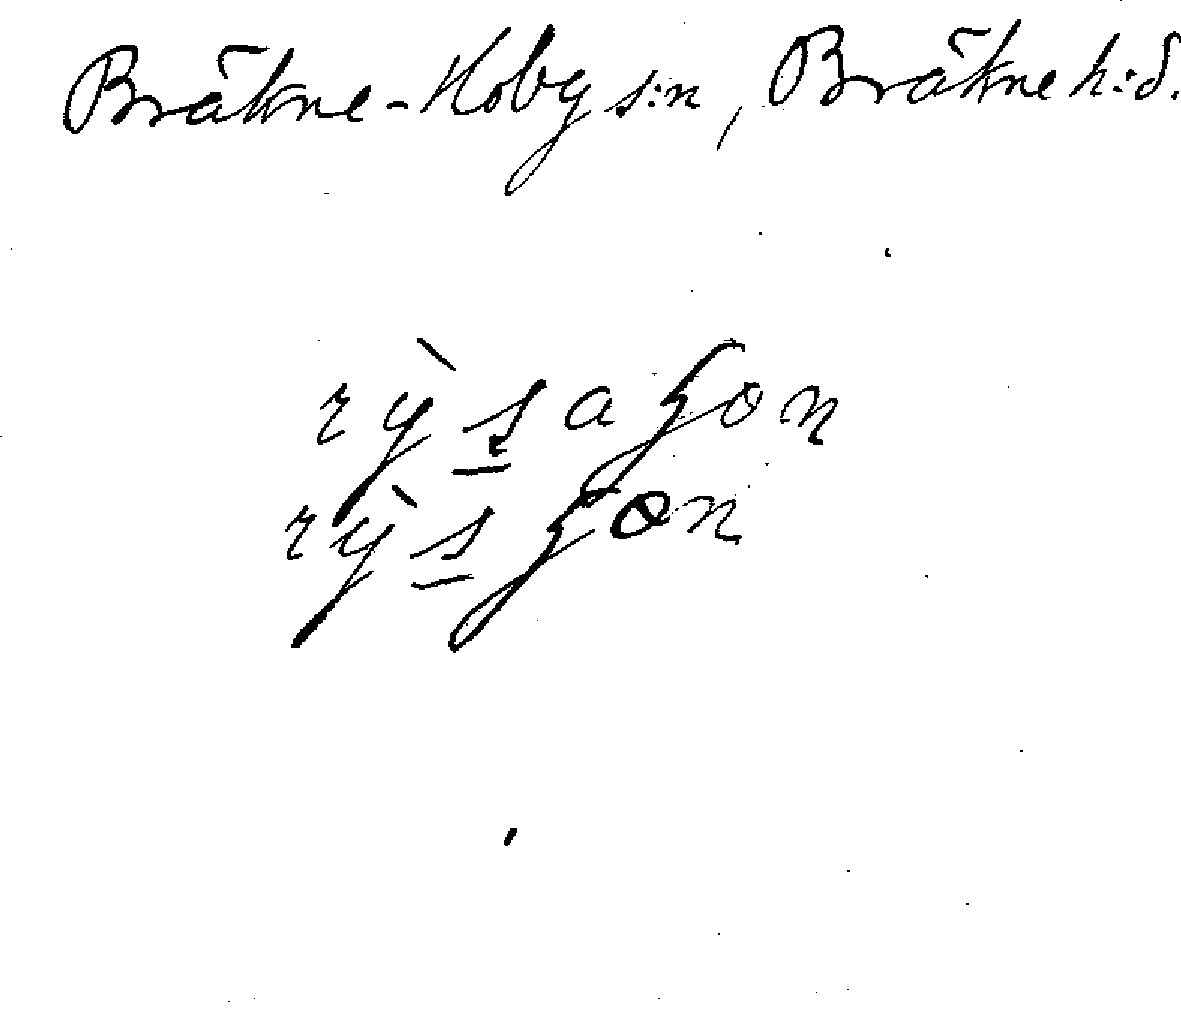 Bräkne-Hoby s:n, Bräkne h:d.
rỳsaʒon
rỳsʒon